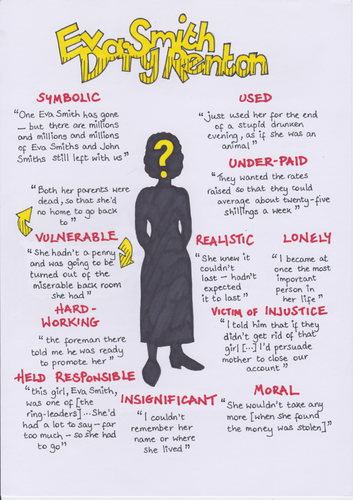 Eva Smith
Daisy Renton
SYMBOLIC
"One Eva Smith has gone
– but there are millions
and millions and millions
of Eva Smiths and John
Smiths still left with us"
"Both her parents were
dead, so that she'd
no home to go back
to"
VULNERABLE
"She hadn't a penny
and was going to be
turned out of the
miserable back room
she had"
HARD-
WORKING
"the foreman there
told me he was ready
to promote her"
HELD RESPONSIBLE
"this girl, Eva Smith,
was one of [the
ring-leaders]...She'd
had a lot to say – far
too much – so she had
to go"
?
USED
"just used her for the end
of a stupid drunken
evening, as if she was an
animal"
UNDER-PAID
"They wanted the rates
raised so that they could
average about twenty-five
shillings a week"
REALISTIC
"She knew it
couldn't
last – hadn't
expected
it to last"
LONELY
"I became at
once the most
important
person in
her life"
VICTIM OF INJUSTICE
"I told him that if they
didn't get rid of that
girl [...] I'd persuade
mother to close our
account"
INSIGNIFICANT
"I couldn't
remember
her name or where
she lived"
MORAL
"She wouldn't take any
more [when she found
the money was stolen]"